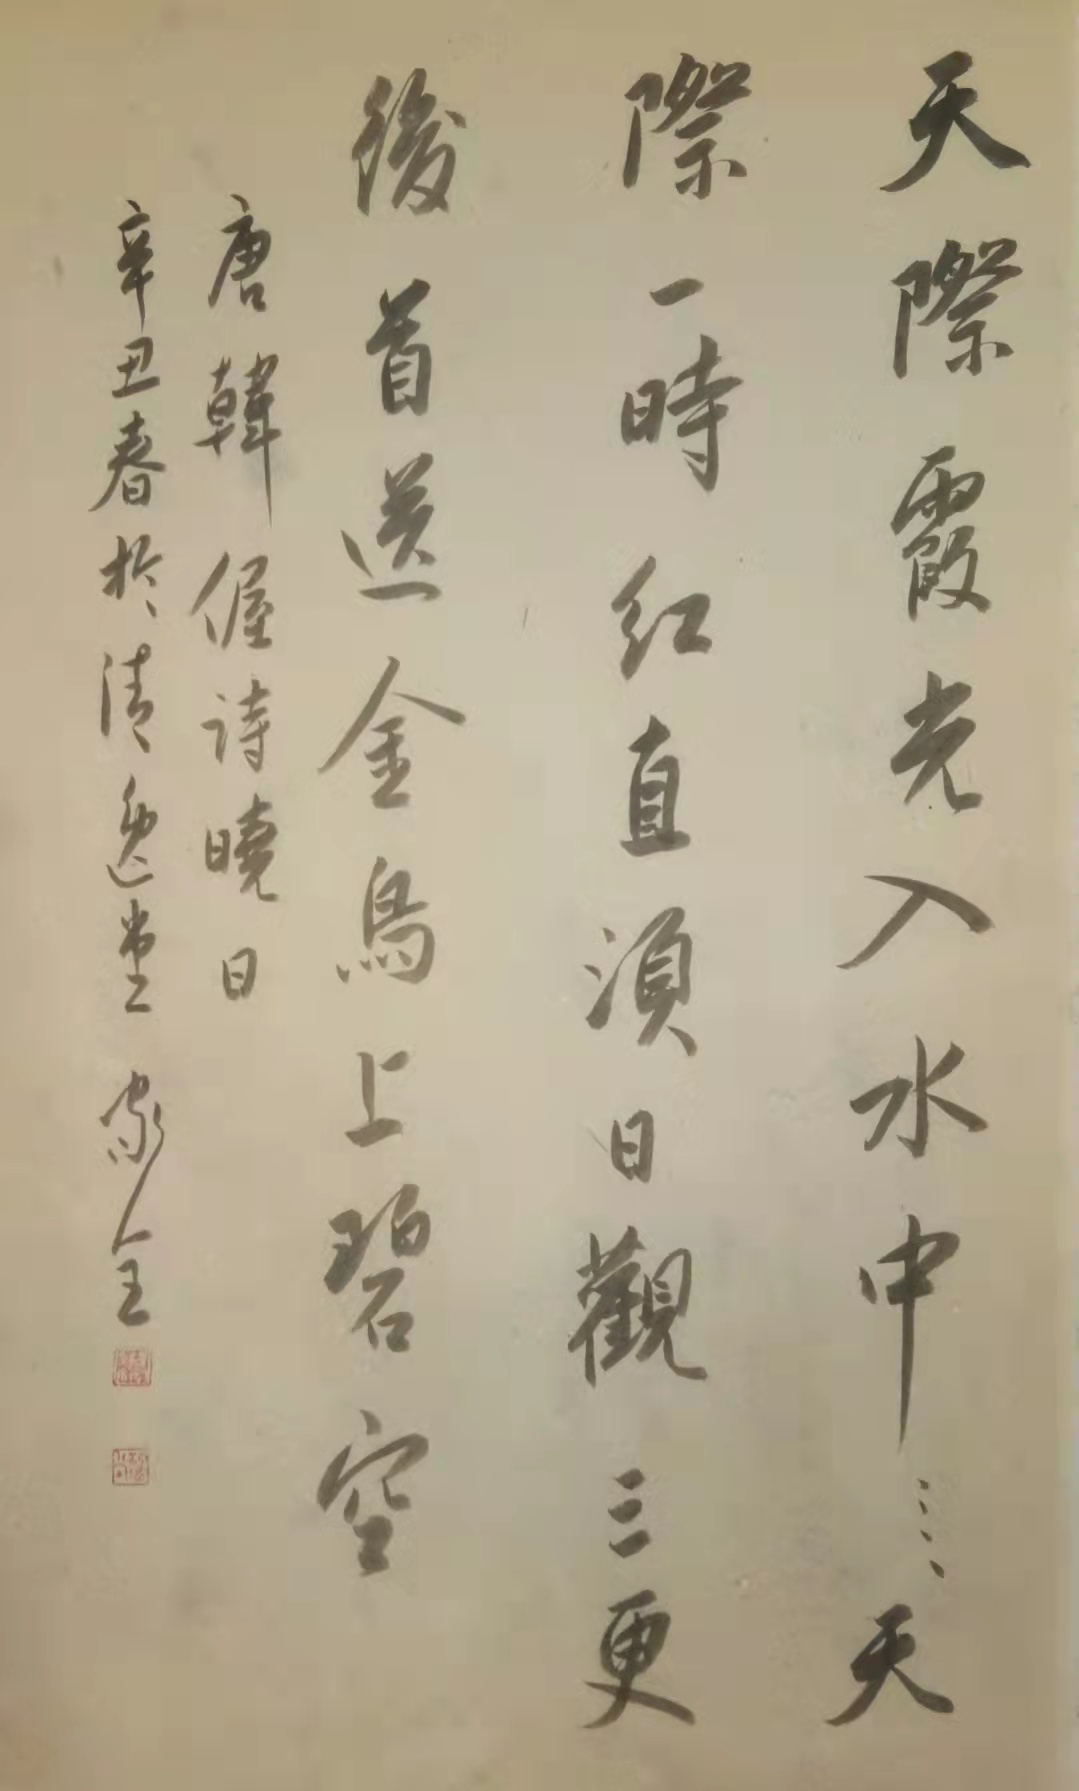 天際霞光入水中⋮天
際一時紅直須日觀三更
後首送金烏上碧空
唐韓偓詩曉日
辛丑春於清逸堂 家全